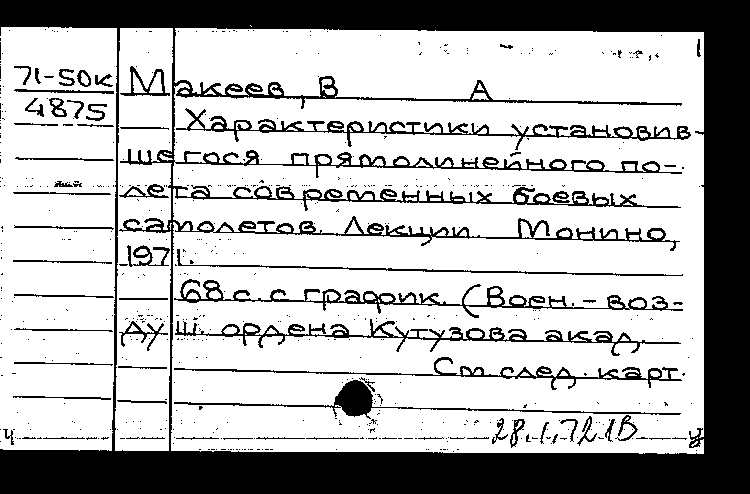 71-50к Макеев, В А
4875 Характеристики установив-
шегося прямолинейного по-
лета современных боевых
самолетов. Лекции. Монино,
1971.
68 с. с график. (Воен.-воз-
душ. ордена Кутузова акад.
См. след. карт.
28.1.72 1В